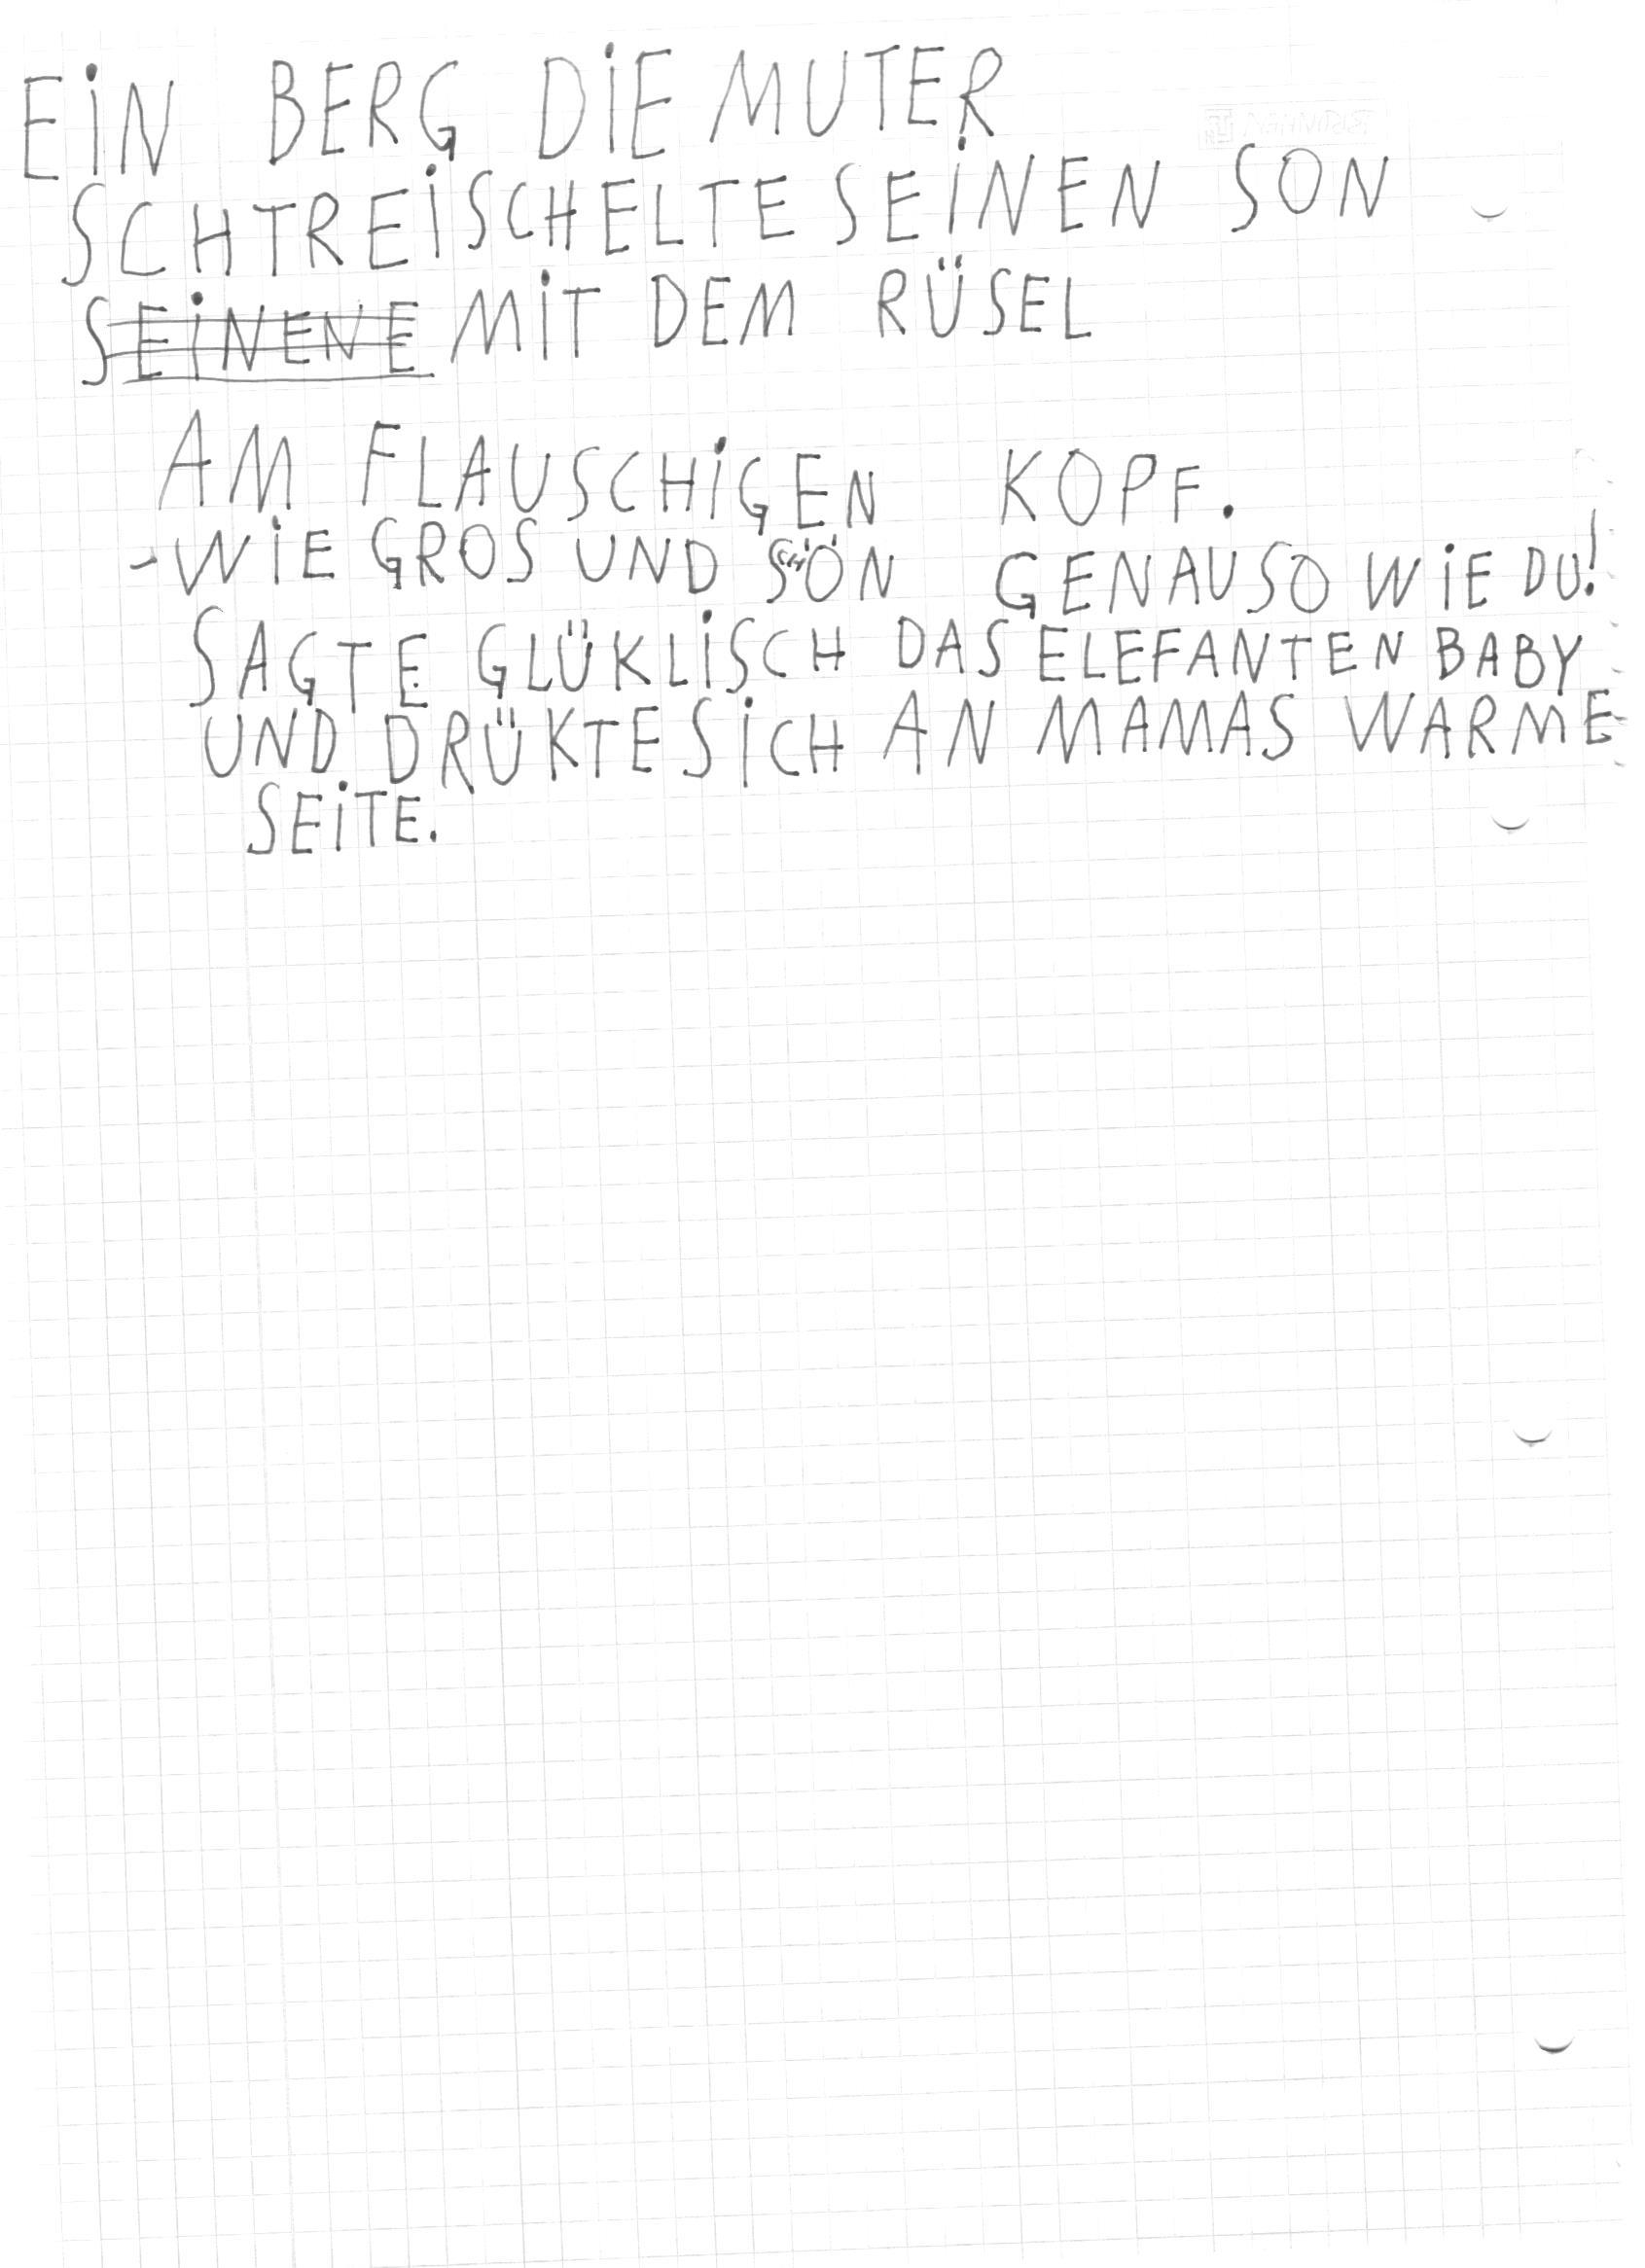 EiN BERG DiE MUTER
SCHTREiSCHELTE SEiNEN SON
SEiNENE MiT DEM RÜSEL
AM FLAUSCHiGEN KOPF.
- WiE GROS UND SCHÖN GENAUSO WiE DU!
SAGTE GLÜKLiSCH DAS ELEFANTEN BABY
UND DRÜKTE SiCH AN MAMAS WARME
SEiTE.